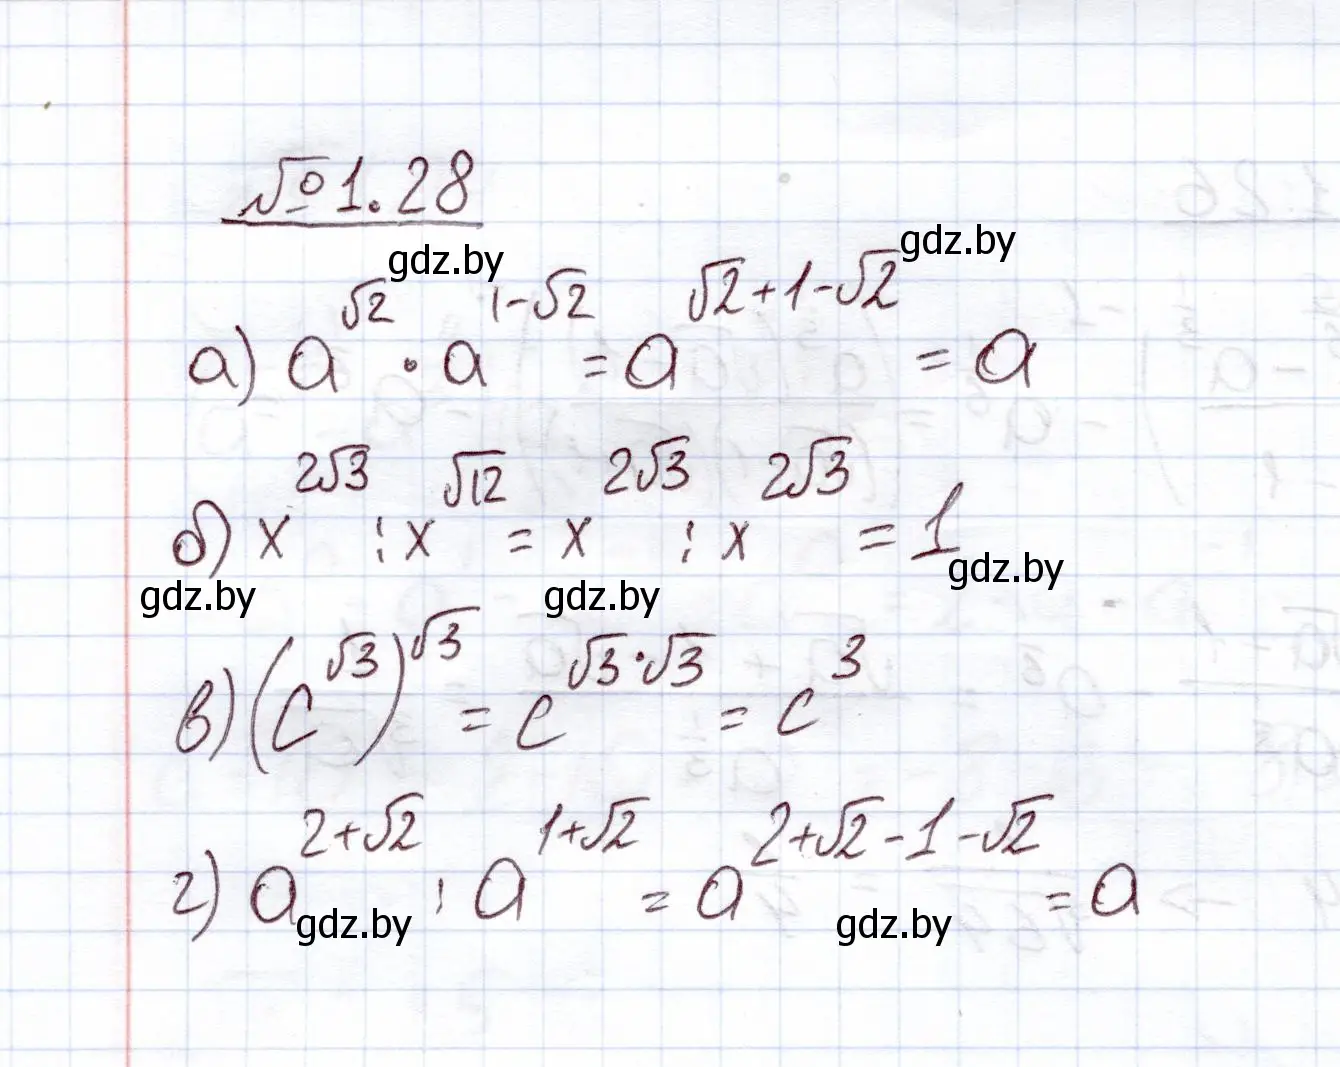 №1.28
gdz.by
gdz.by
а) a^{√2} · a^{1-√2} = a^{√2+1-√2} = a
б) x^{2√3} : x^{√12} = x^{2√3} : x^{2√3} = 1
gdz.by
gdz.by
gdz.by
в) (c^{√3})^{√3} = c^{√3·√3} = c^3
г) a^{2+√2} : a^{1+√2} = a^{2+√2-1-√2} = a
gdz.by
gdz.by